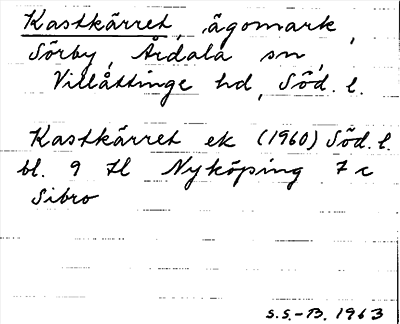 Kastkärret, ägomark,
Sörby, Årdala sn,
Villåttinge hd, Söd. l.
Kastkärret ek (1960) Söd. l.
bl. 9 Hl Nyköping 7 c
Sibro
S.S.-B. 1963